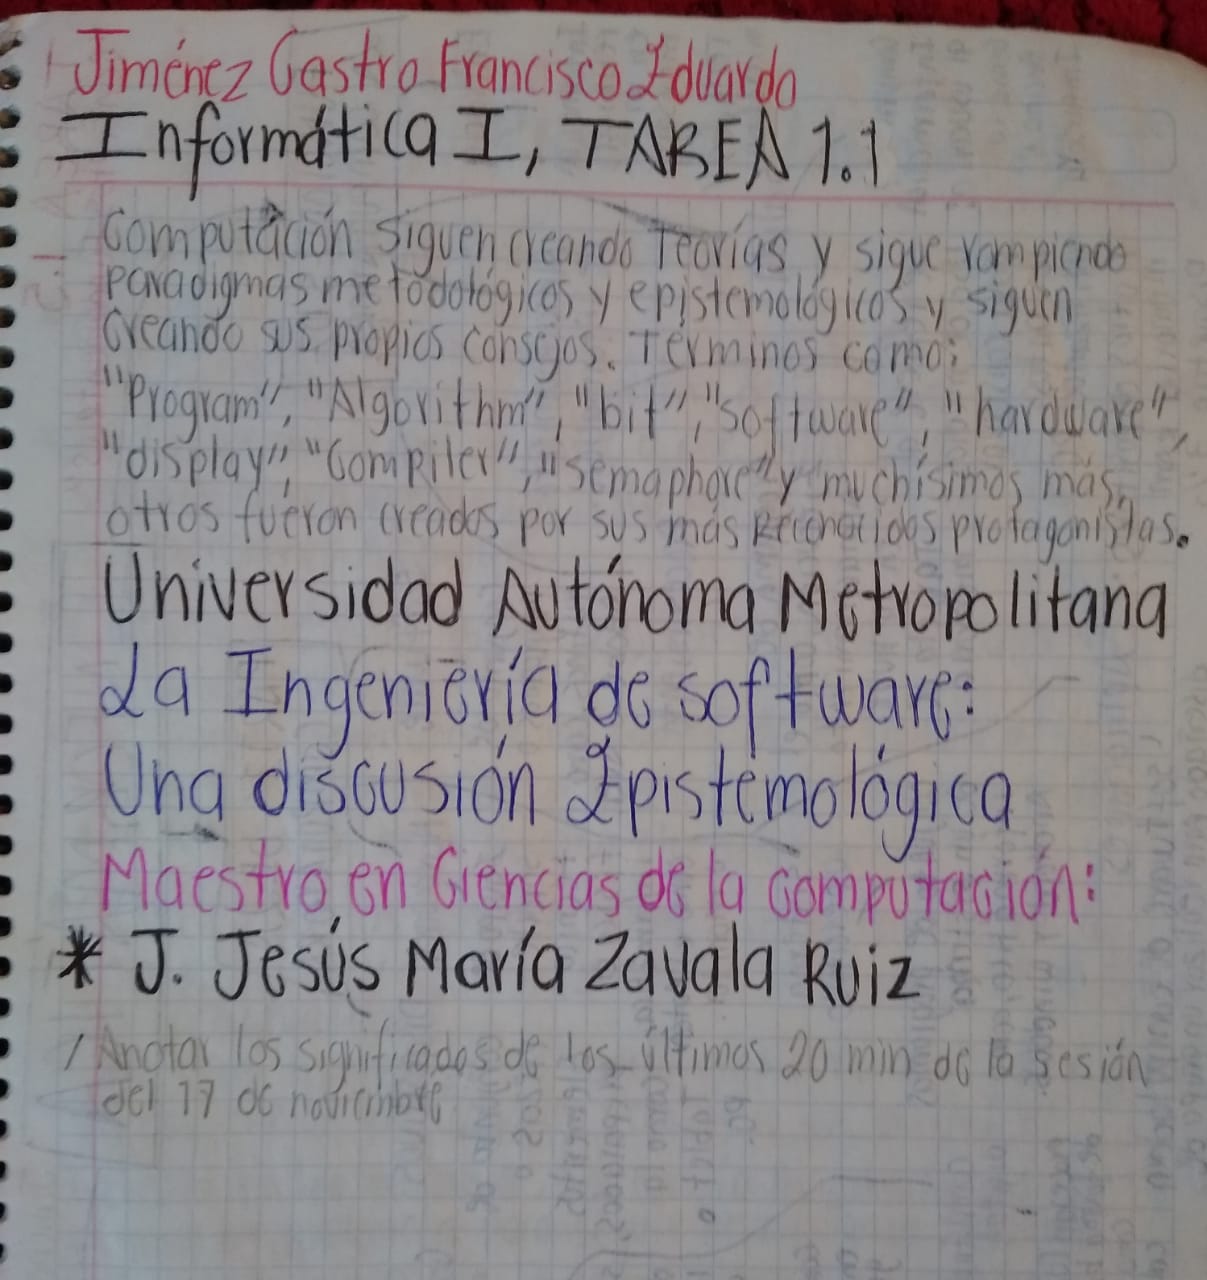 Jiménez Castro Francisco Eduardo
Informática I, TAREA 1.1
Computación siguen creando Teorías y sigue rompiendo
paradigmas metodológicos y epistemológicos y siguen
Creando sus propios consejos. Términos como:
"Program", "Algorithm", "bit", "software", "hardware",
"display", "Compiler", "semaphore" y muchísimos más,
otros fueron creados por sus más Reconocidos protagonistas.
Universidad Autónoma Metropolitana
La Ingeniería de software:
Una discusión Epistemológica
Maestro en Ciencias de la Computación:
* J. Jesús María Zavala Ruiz
/ Anotar los significados de los últimos 20 min de la sesión
del 17 de noviembre